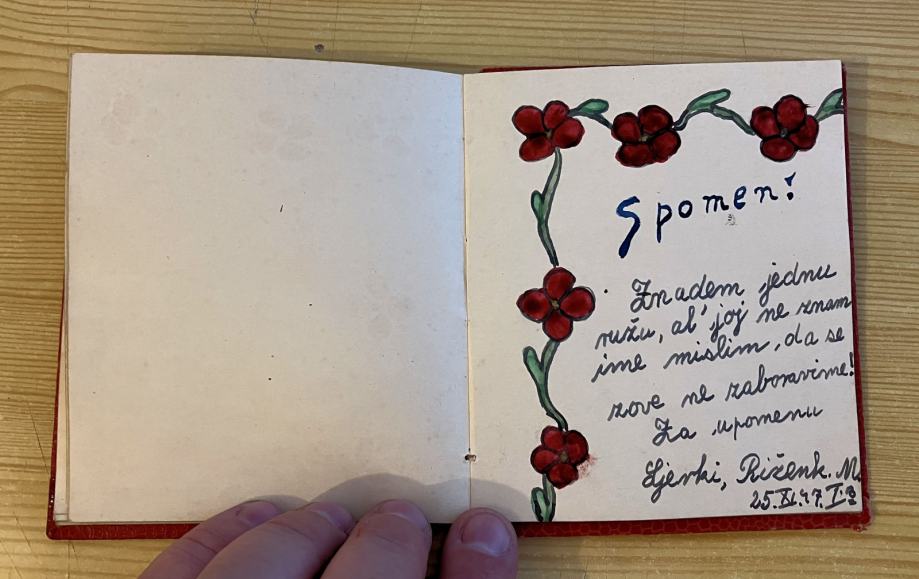 Spomen!
Znadem jednu
ružu, al' joj ne znam
ime mislim, da se
zove ne zaboravime!
Za upomenu
Ljerki, Riženk. M
25.XI.47. I.a